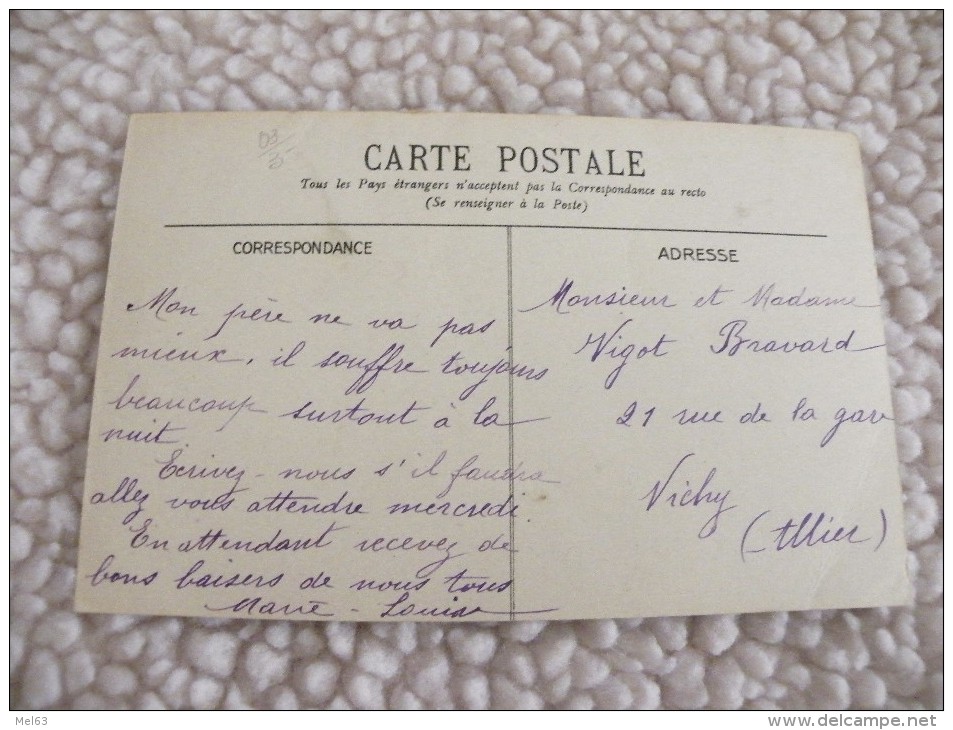 03/
CARTE POSTALE
Tous les Pays étrangers n'acceptent pas la Correspondance au recto
(Se renseigner à la Poste)
CORRESPONDANCE
Mon père ne va pas
mieux, il souffre toujours
beaucoup surtout à la
nuit.
Ecrivez-nous s'il faudra
allez vous attendre mercredi.
En attendant recevez de
bons baisers de nous tous
Marie-Louise
ADRESSE
Monsieur et Madame
Vigot Bravard
21 rue de la gare
Vichy
(Allier)
Mel63
www.delcampe.net